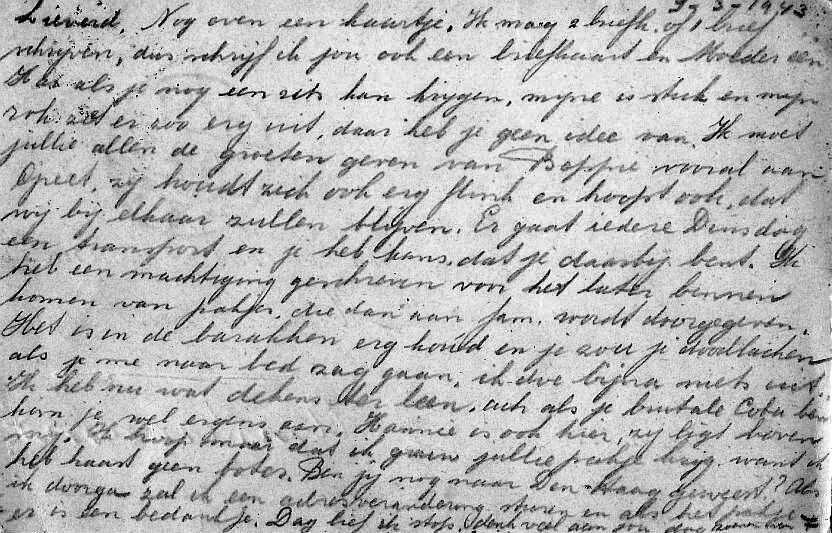 9-3-1943
Lieverd, Nog even een kaartje. Ik mag 2 briefk. of 1 brief
schrijven, dus schrijf ik jou ook een briefkaart en Moeder een
als je nog een zits kan krijgen, mijne is stuk en mijn
rok ziet er zoo erg uit, daar heb je geen idee van. Ik moet
jullie allen de groeten geven van Beppie vooral aan
zij houdt zich ook erg flink en hoopt ook, dat
wij bij elkaar zullen blijven. Er gaat iedere Dinsdag
een transport en je heb kans, dat je daarbij bent. Ik
heb een machtiging geschreven voor het later binnen
komen van pakjes, die dan aan fam. wordt doorgegeven.
Het is in de barakken erg koud en je zou je doodlachen
als je me naar bed zag gaan, ik doe bijna niets uit.
Ik heb nu wat dekens ter leen, ach als je brutale Coba ben
kom je wel ergens aan. Hannie is ook hier, zij ligt boven
mij. Ik hoop maar dat ik gauw jullie pakje krijg, want ik
heb haast geen fotos. Ben jij nog naar Den Haag geweest? Als
ik doorga zal ik een adresverandering sturen en als het pakje
er is een bedankje. Dag lief ik stop, denk veel aan jou dag